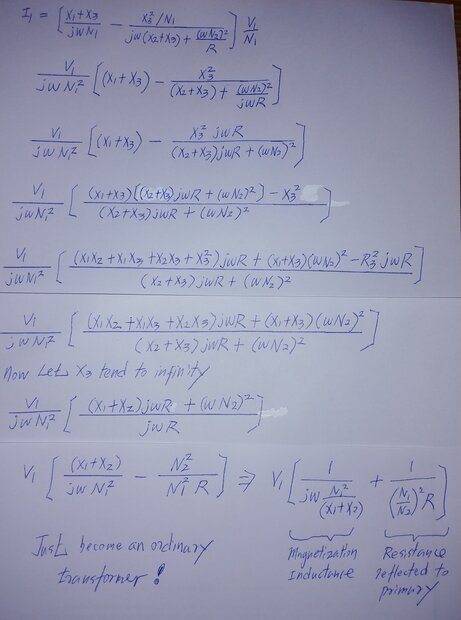 I₁ = [ (x₁+x₃)/(jwN₁) − (x₃²/N₁)/(jw(x₂+x₃) + (wN₂)²/R) ] V₁/N₁
V₁/(jwN₁²) [ (x₁+x₃) − x₃²/((x₂+x₃) + (wN₂)²/(jwR)) ]
V₁/(jwN₁²) [ (x₁+x₃) − (x₃² jwR)/((x₂+x₃)jwR + (wN₂)²) ]
V₁/(jwN₁²) [ ((x₁+x₃)[(x₂+x₃)jwR + (wN₂)²] − x₃²)/((x₂+x₃)jwR + (wN₂)²) ]
V₁/(jwN₁²) [ ((x₁x₂+x₁x₃+x₂x₃+x₃²)jwR + (x₁+x₃)(wN₂)² − R₃² jwR)/((x₂+x₃)jwR + (wN₂)²) ]
V₁/(jwN₁²) [ ((x₁x₂+x₁x₃+x₂x₃)jwR + (x₁+x₃)(wN₂)²)/((x₂+x₃)jwR + (wN₂)²) ]
Now Let x₃ tend to infinity
V₁/(jwN₁²) [ ((x₁+x₂)jwR + (wN₂)²)/(jwR) ]
V₁ [ (x₁+x₂)/(jwN₁²) − N₂²/(N₁²R) ] ⇒ V₁ [ 1/(jw N₁²/(x₁+x₂)) + 1/((N₁/N₂)²R) ]
Just become an ordinary
transformer!
Magnetization
Inductance
Resistance
reflected to
primary